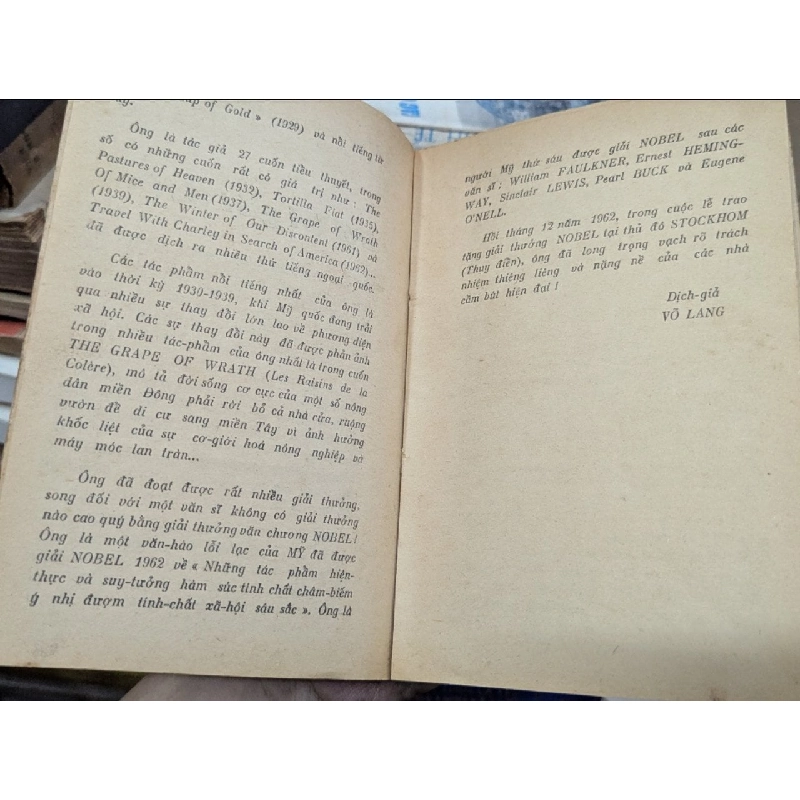 ap of Gold » (1929) và nổi tiếng từ
Ông là tác giả 27 cuốn tiều thuyết, trong
số có những cuốn rất có giá trị như : The
Pastures of Heaven (1932), Tortilla Flat (1935),
Of Mice and Men (1937), The Grape of Wrath
(1939), The Winter of Our Discontent (1961) và
Travel With Charley in Search of America (1962)...
đã được dịch ra nhiều thứ tiếng ngoại quốc.
Các tác phẩm nổi tiếng nhất của ông là
vào thời kỳ 1930-1939, khi Mỹ quốc đang trải
qua nhiều sự thay đổi lớn lao về phương diện
xã hội. Các sự thay đổi này đã được phản ảnh
trong nhiều tác-phẩm của ông nhất là trong cuốn
THE GRAPE OF WRATH (Les Raisins de la
Colère), mô tả đời sống cơ cực của một số nông
dân miền Đông phải rời bỏ cả nhà cửa, ruộng
vườn đề di cư sang miền Tây vì ảnh hưởng
khốc liệt của sự cơ-giới hoá nông nghiệp và
máy móc lan tràn...
Ông đã đoạt được rất nhiều giải thưởng,
song đối với một văn sĩ không có giải thưởng
nào cao quý bằng giải thưởng văn chương NOBEL !
Ông là một văn-hào lỗi lạc của MỸ đã được
giải NOBEL 1962 về « Những tác phẩm hiện-
thực và suy-tưởng hàm súc tính chất châm-biếm
ý nhị đượm tính-chất xã-hội sâu sắc ». Ông là
người Mỹ thứ sáu được giải NOBEL sau các
văn sĩ : William FAULKNER, Ernest HEMING-
WAY, Sinclair LEWIS, Pearl BUCK và Eugene
O'NELL.
Hồi tháng 12 năm 1962, trong cuộc lễ trao
tặng giải thưởng NOBEL tại thủ đô STOCKHOM
(Thuỵ điển), ông đã long trọng vạch rõ trách
nhiệm thiêng liêng và nặng nề của các nhà
cầm bút hiện đại !
Dịch-giả
VÕ LANG